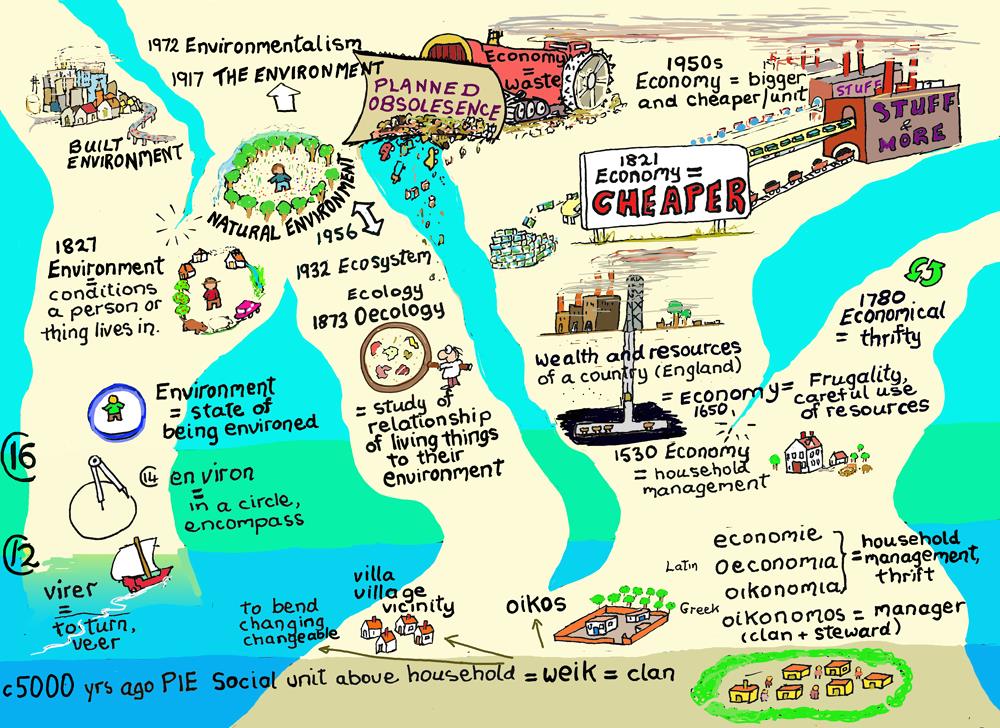 1972 Environmentalism
1917 THE ENVIRONMENT
BUILT
ENVIRONMENT
NATURAL ENVIRONMENT
PLANNED
OBSOLESENCE
Economy
=
waste
1950s
Economy = bigger
and cheaper/unit
STUFF
STUFF
&
MORE
1821
Economy =
CHEAPER
1827
Environment
=
conditions
a person or
thing lives in.
1956
1932 Ecosystem
Ecology
1873 Oecology
= study of
relationship
of living things
to their
environment
1780
Economical
= thrifty
Wealth and resources
of a country (England)
= Economy =
1650,
Frugality,
careful use
of resources
1530 Economy
= household
management
Environment
= state of
being environed
16
14
environ
=
in a circle,
encompass
12
virer
=
to turn,
veer
to bend
changing
changeable
villa
village
vicinity
oikos
Greek
Latin
economie
oeconomia
oikonomia
= household
management,
thrift
oikonomos = manager
(clan + steward)
c5000 yrs ago PIE Social unit above household = weik = clan